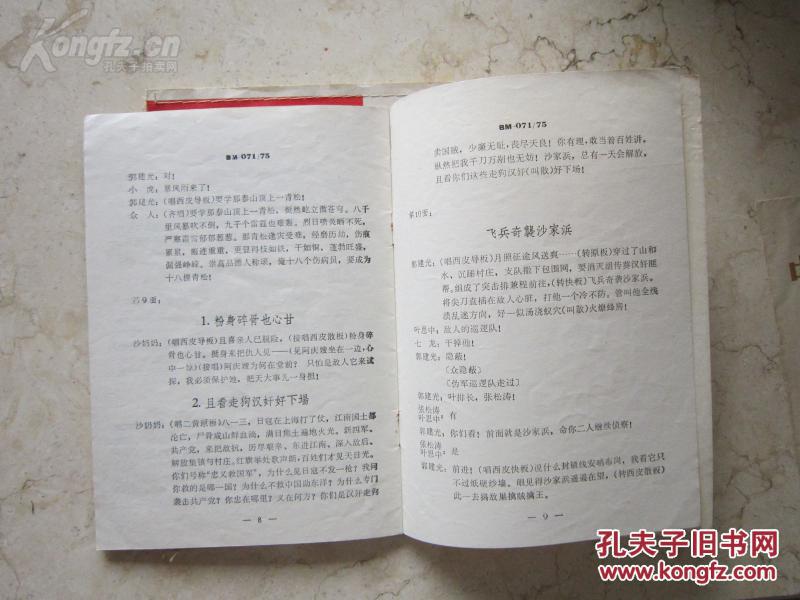 Kongfz.cn
孔夫子拍卖网
BM-071/75
郭建光：对！
小 虎：暴风雨来了！
郭建光：（唱西皮导板）要学那泰山顶上一青松！
众 人：（齐唱）要学那泰山顶上一青松，挺然屹立傲苍穹。八千
里风暴吹不倒，九千个雷霆也难轰。烈日喷炎晒不死，
严寒霜雪郁郁葱葱。那青松逢灾受难，经磨历劫，伤痕
累累，瘢迹重重，更显得枝如铁，干如铜，蓬勃旺盛，
倔强峥嵘。崇高品德人称颂，俺十八个伤病员，要成为
十八棵青松！
第9面：
1.粉身碎骨也心甘
沙奶奶：（唱西皮散板）且喜亲人已脱险，（接唱西皮散板）粉身碎
骨也心甘。挺身来把仇人见——（见阿庆嫂坐在一边，心
中一惊）（接唱）阿庆嫂为何在堂前？只怕是敌人它来试
探，我必须保护她，把天大事儿一身担！
2.且看走狗汉奸好下場
沙奶奶：（唱二黄原板）八一三，日寇在上海打了仗，江南国土都
沦亡，尸骨成山鲜血淌，满目焦土遍地火光。新四军，
共产党，来把敌抗，历尽艰辛、东进江南，深入敌后，
解放集镇与村庄。红旗举处歌声朗，百姓们才见天日光。
你们号称“忠义救国军”，为什么见日寇不发一枪？我问
你救的是哪一国？为什么不救中国助东洋？为什么专门
袭击共产党？你忠在哪里？义在何方？你们是汉奸走狗
— 8 —
BM-071/75
卖国贼，少廉无耻，丧尽天良！你有理，敢当着百姓讲，
纵然把我千刀万剐也无妨！沙家浜，总有一天会解放，
且看你们这些走狗汉奸（叫散）好下场！
第10面：
飞兵奇襲沙家浜
郭建光：（唱西皮导板）月照征途风送爽——（转原板）穿过了山和
水，沉睡村庄，支队撒下包围网，要消灭祖传蒋汉奸匪
帮。组成了突击排兼程前往，（转快板）飞兵奇袭沙家浜，
将尖刀直插在敌人心脏，打他一个冷不防。管叫他全线
溃乱迷方向，好一似汤浇蚁穴（叫散）火燎蜂房！
叶思中：敌人的巡逻队！
七 龙：干掉他！
郭建光：隐蔽！
〔众隐蔽〕
〔伪军巡逻队走过〕
郭建光：叶排长，张松涛！
张松涛
叶思中：有
郭建光：你们看！前面就是沙家浜，命你二人继续侦察！
张松涛
叶思中：是
郭建光：前进！（唱西皮快板）说什么封锁线安哨布岗，我看它只
不过纸硬纱墙。眼见得沙家浜遥遥在望，（转西皮散板）
此一去捣敌巢擒贼擒王。
— 9 —
孔夫子旧书网
www.kongfz.com